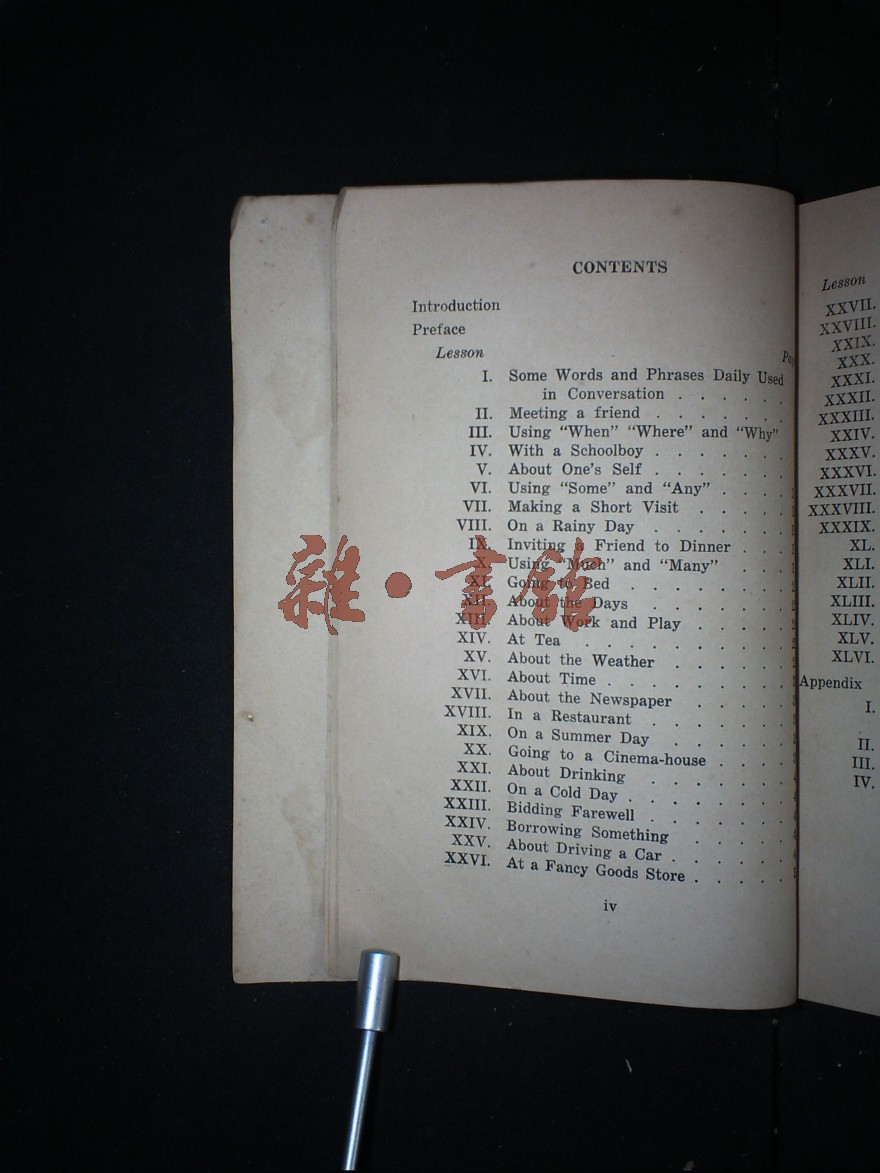 CONTENTS
Introduction
Preface
Lesson
I. Some Words and Phrases Daily Used
in Conversation . . . . . .
II. Meeting a friend . . . . . . .
III. Using "When" "Where" and "Why"
IV. With a Schoolboy . . . . . .
V. About One's Self . . . . . .
VI. Using "Some" and "Any" . . . .
VII. Making a Short Visit . . . . .
VIII. On a Rainy Day . . . . . .
IX. Inviting a Friend to Dinner . . .
X. Using "Much" and "Many" . . .
XI. Going to Bed . . . . . . .
XII. About the Days . . . . . .
XIII. About Work and Play . . . . .
XIV. At Tea . . . . . . . . .
XV. About the Weather . . . . . .
XVI. About Time . . . . . . . .
XVII. About the Newspaper . . . . .
XVIII. In a Restaurant . . . . . .
XIX. On a Summer Day . . . . . .
XX. Going to a Cinema-house . . . .
XXI. About Drinking . . . . . .
XXII. On a Cold Day . . . . . . .
XXIII. Bidding Farewell . . . . . .
XXIV. Borrowing Something . . . . .
XXV. About Driving a Car . . . . .
XXVI. At a Fancy Goods Store . . . .
iv
Lesson
XXVII.
XXVIII.
XXIX.
XXX.
XXXI.
XXXII.
XXXIII.
XXIV.
XXXV.
XXXVI.
XXXVII.
XXXVIII.
XXXIX.
XL.
XLI.
XLII.
XLIII.
XLIV.
XLV.
XLVI.
Appendix
I.
II.
III.
IV.
雜·書館